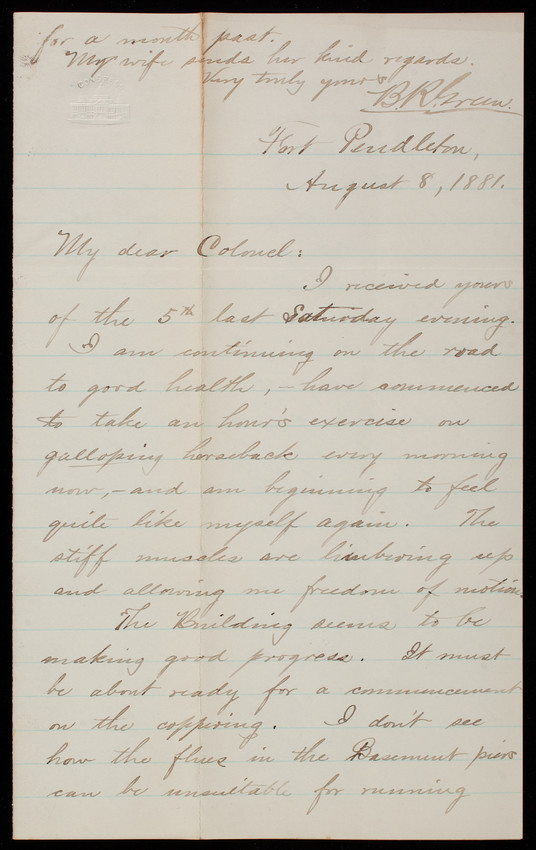 for a month past.
My wife sends her kind regards.
Very truly yours
B.R. Green.
Fort Pendleton,
August 8, 1881.
My dear Colonel:
I received yours
of the 5th last Saturday evening.
I am continuing on the road
to good health, – have commenced
to take an hour's exercise on
galloping horseback every morning
now, – and am beginning to feel
quite like myself again. The
stiff muscles are limbering up
and allowing me freedom of motion.
The Building seems to be
making good progress. It must
be about ready for a commencement
on the coppering. I don't see
how the flues in the Basement piers
can be unsuitable for running